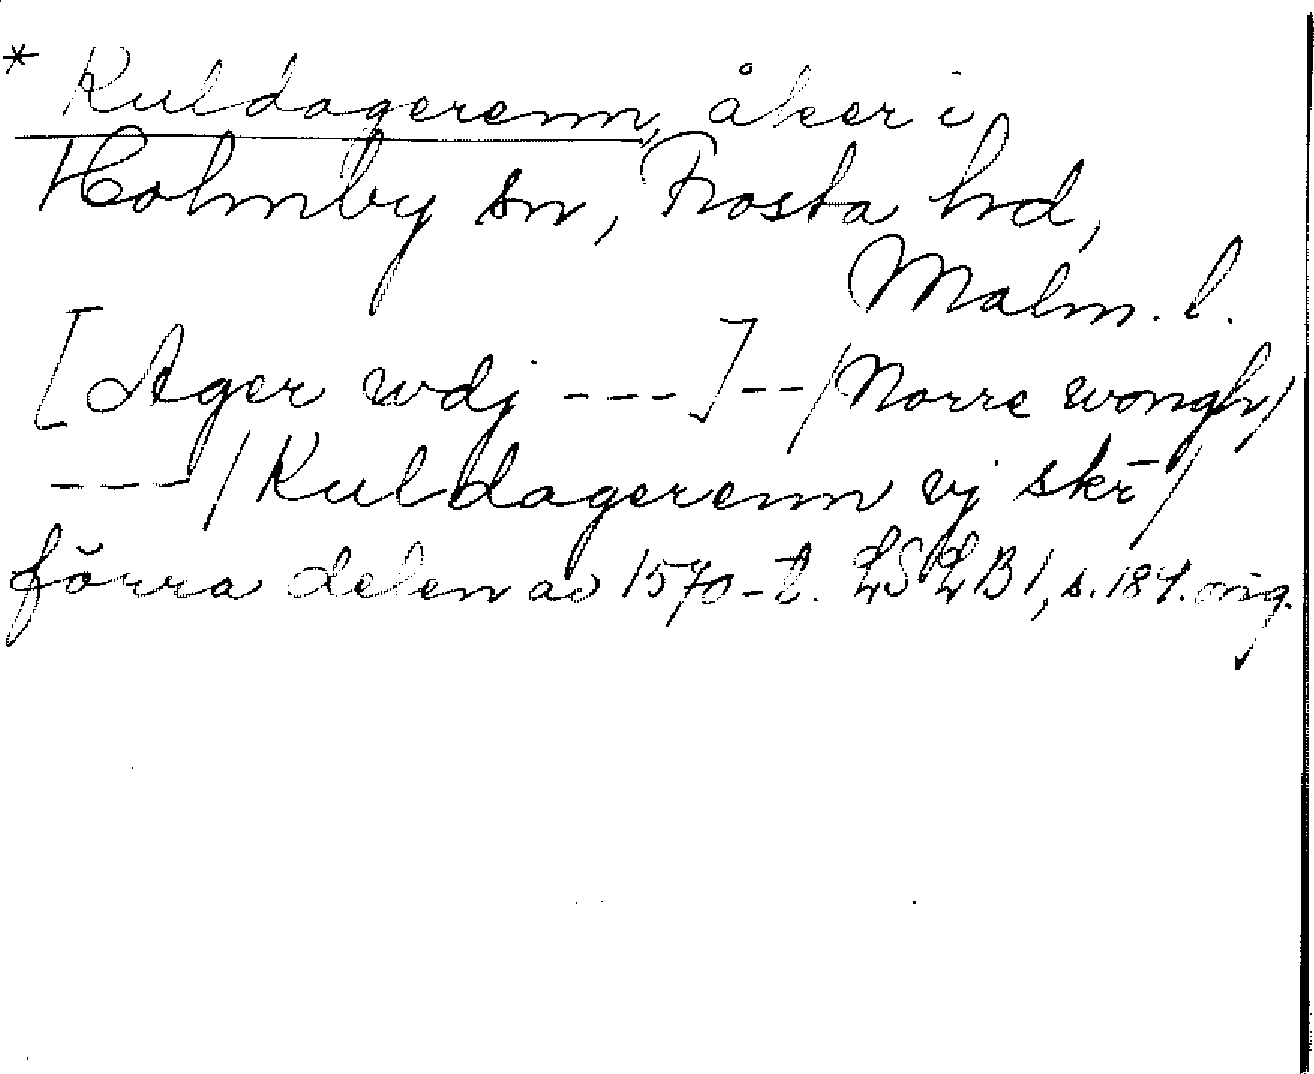 * Kuldagerenn, åker i
Holmby sn, Frosta hd,
Malm. l.
[Ager wdj ---] -- /Norre wongh/
--- / Kuldagerenn vj skr̄ /
förra delen av 1570-t. LSLB1, s. 184. orig.